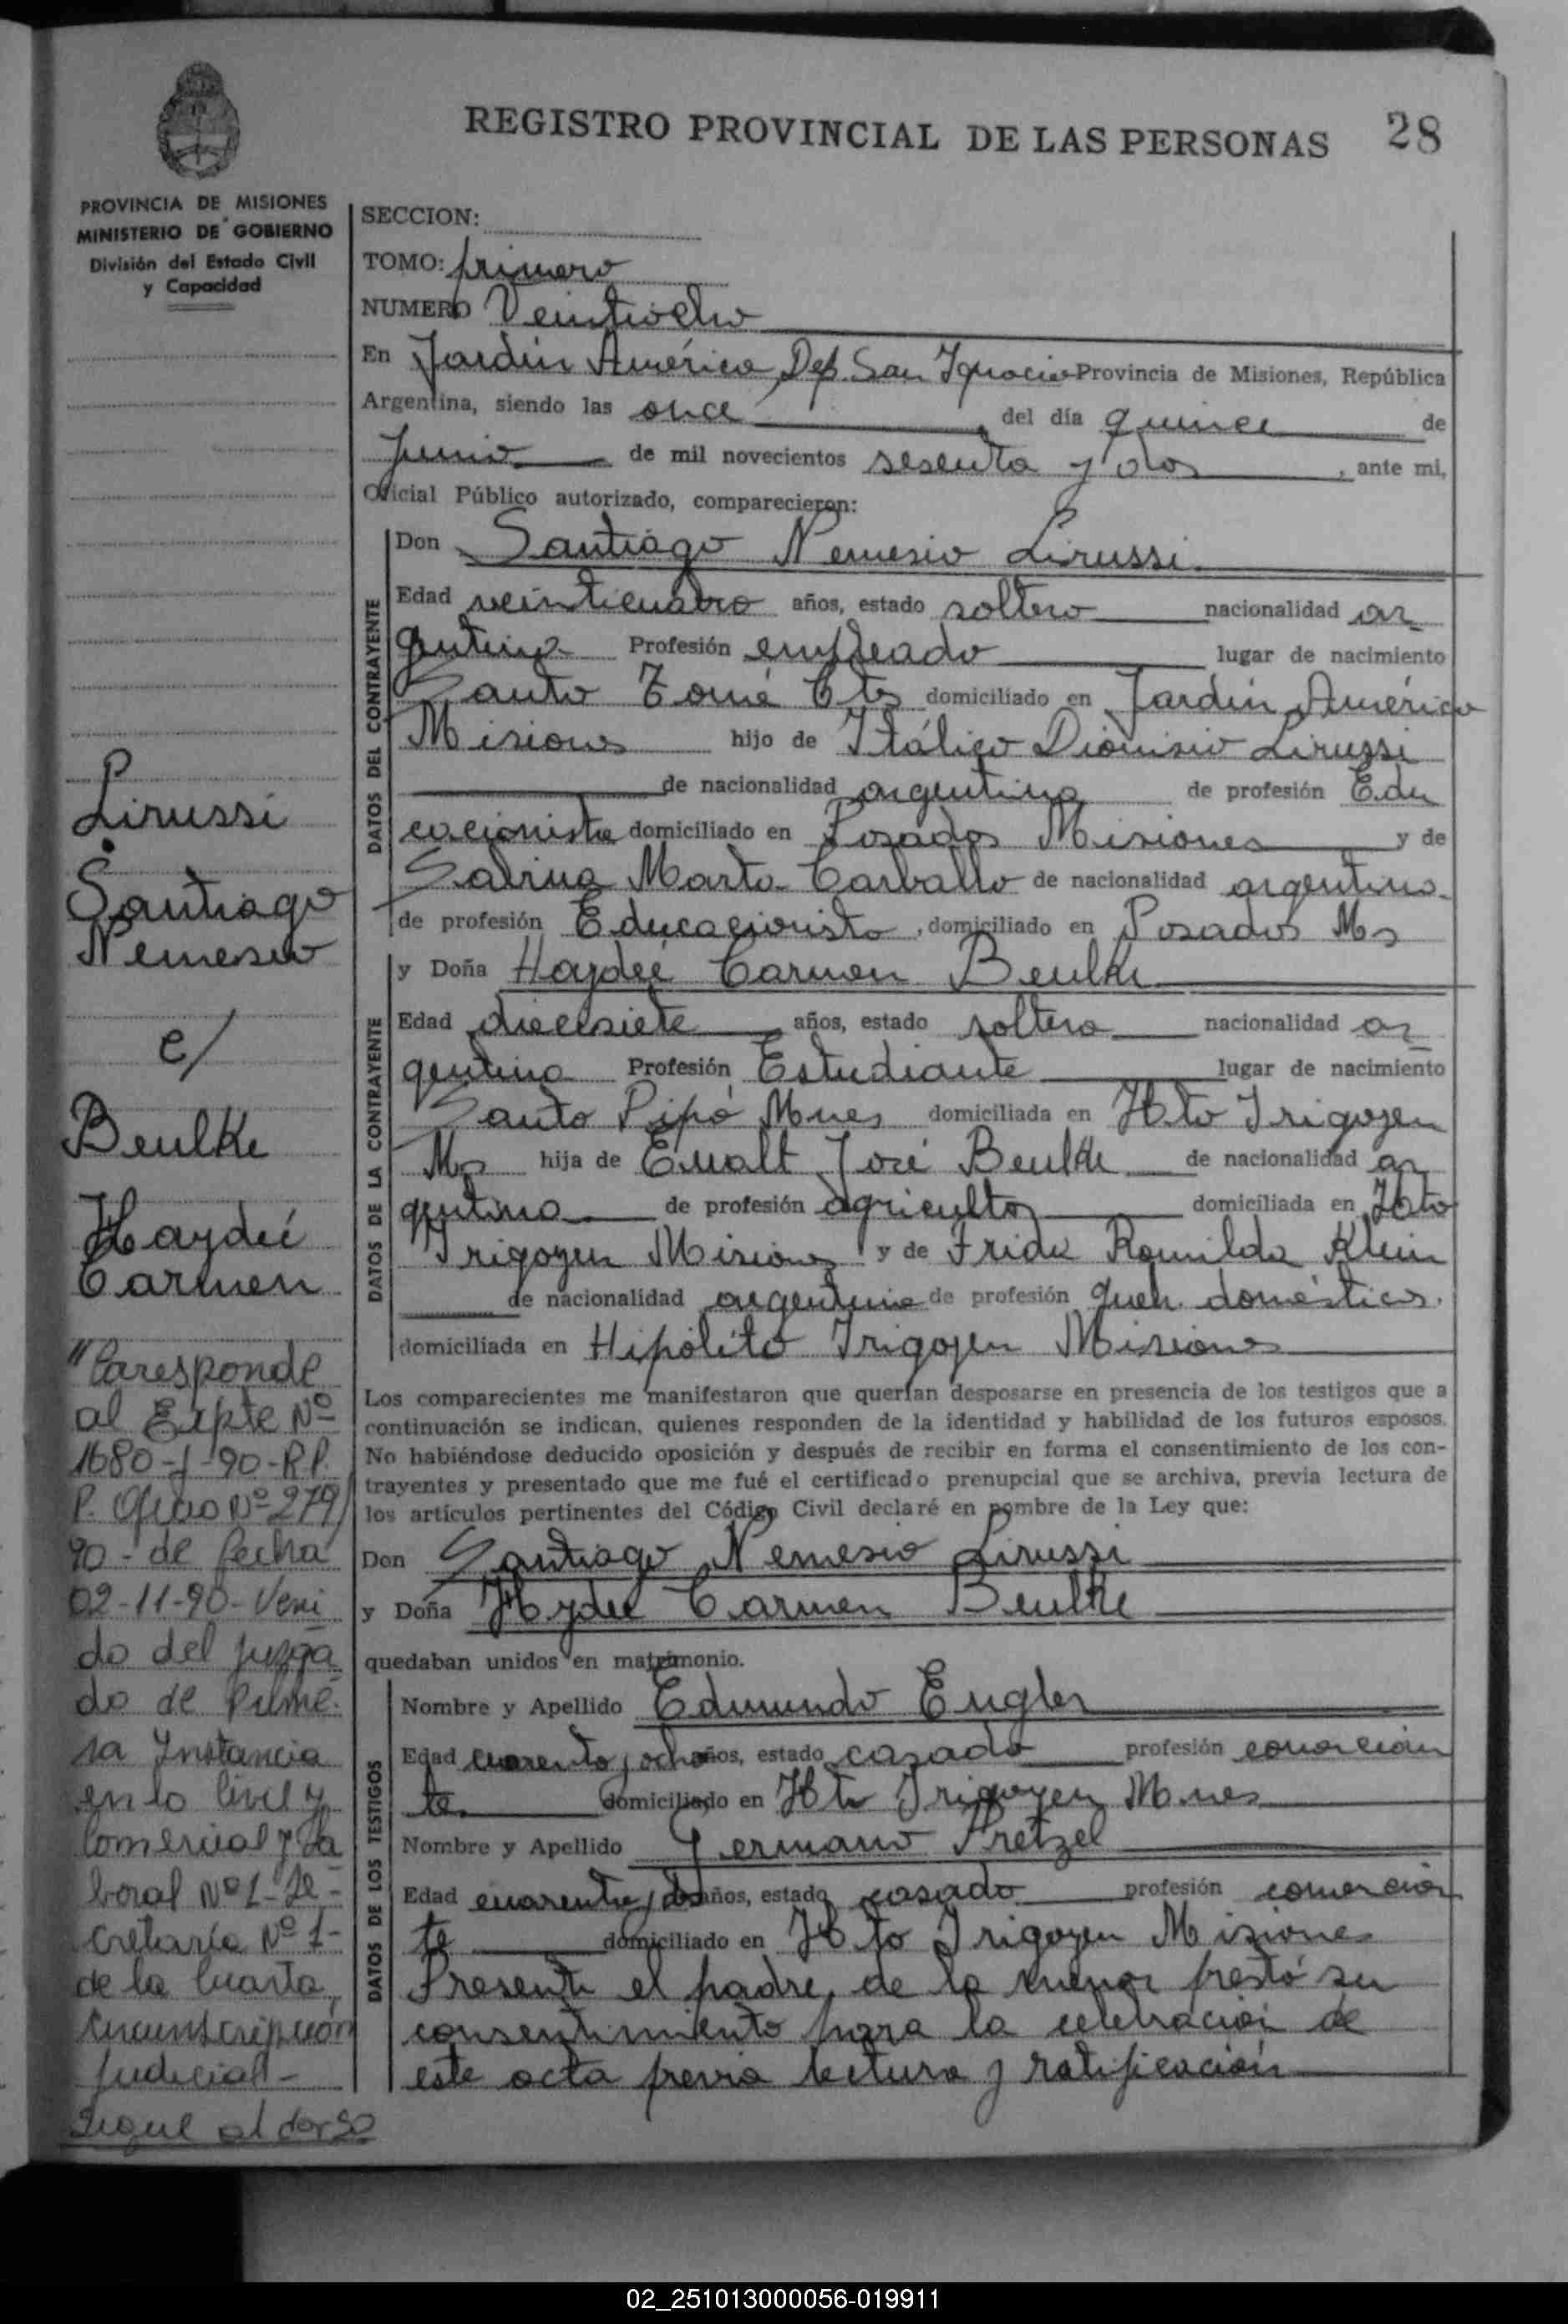 REGISTRO PROVINCIAL DE LAS PERSONAS 28
PROVINCIA DE MISIONES
MINISTERIO DE GOBIERNO
División del Estado Civil
y Capacidad
SECCION:
TOMO: primero
NUMERO Veintiocho
En Jardín América Dep. San Ignacio Provincia de Misiones, República
Argentina, siendo las once del día quince de
Junio de mil novecientos sesenta y dos, ante mi,
Oficial Público autorizado, comparecieron:
DATOS DEL CONTRAYENTE
Don Santiago Nemesio Lirussi
Edad veinticuatro años, estado soltero nacionalidad ar
gentina Profesión empleado lugar de nacimiento
Santo Tomé Ctes domiciliado en Jardín América
Misiones hijo de Itálico Dionisio Lirussi
de nacionalidad argentina de profesión Edu
cacionista domiciliado en Posadas Misiones y de
Sabina Marta Carballo de nacionalidad argentina
de profesión Educacionista, domiciliado en Posadas Ms
DATOS DE LA CONTRAYENTE
y Doña Haydeé Carmen Beulke
Edad diecisiete años, estado soltera nacionalidad ar
gentina Profesión Estudiante lugar de nacimiento
Santo Pipó Mnes domiciliada en Hto Irigoyen
Ms hija de Ewalt José Beulke de nacionalidad ar
gentina de profesión agricultor domiciliada en Hto
Irigoyen Misiones y de Frida Romilda Klein
de nacionalidad argentina de profesión queh. domésticos.
domiciliada en Hipólito Irigoyen Misiones
Los comparecientes me manifestaron que querían desposarse en presencia de los testigos que a
continuación se indican, quienes responden de la identidad y habilidad de los futuros esposos.
No habiéndose deducido oposición y después de recibir en forma el consentimiento de los con-
trayentes y presentado que me fué el certificado prenupcial que se archiva, previa lectura de
los artículos pertinentes del Código Civil declaré en nombre de la Ley que:
Don Santiago Nemesio Lirussi
y Doña Hydeé Carmen Beulke
quedaban unidos en matrimonio.
DATOS DE LOS TESTIGOS
Nombre y Apellido Edmundo Engler
Edad cuarenta y ocho años, estado casado profesión comercian
te domiciliado en Hto Irigoyen Mnes
Nombre y Apellido Germano Pretzel
Edad cuarenta y dos años, estado casado profesión comercian
te domiciliado en Hto Irigoyen Misiones
Presente el padre de la menor prestó su
consentimiento para la celebración de
este acta previa lectura y ratificación
Lirussi
Santiago
Nemesio
c/
Beulke
Haydeé
Carmen
"Coresponde
al Expte Nº
1680-J-90-R.P.
P. Oficio Nº 279/
90- de fecha
02-11-90- Veni
do del juzga
do de Prime-
ra Instancia
en lo Civil y
Comercial y La
boral Nº1- Se-
cretaría Nº 1-
de la Cuarta
Circunscripción
Judicial-
Sigue al dorso
02_251013000056-019911